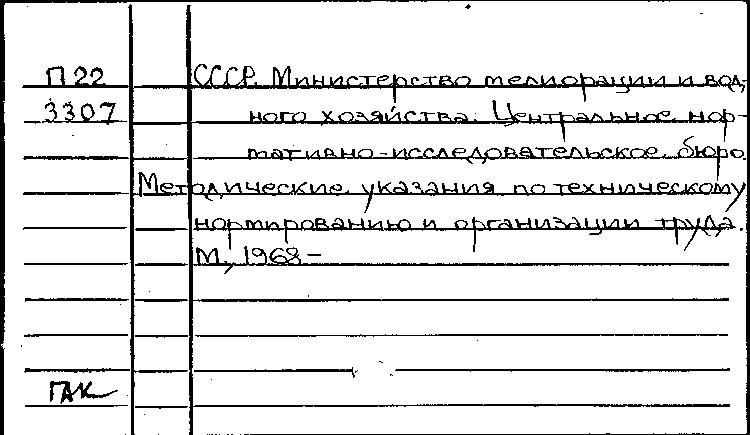 П22 СССР. Министерство мелиорации и вод-
3307 ного хозяйства. Центральное нор-
мативно-исследовательское бюро.
Методические указания по техническому
нормированию и организации труда.
М., 1968 –
ГАК